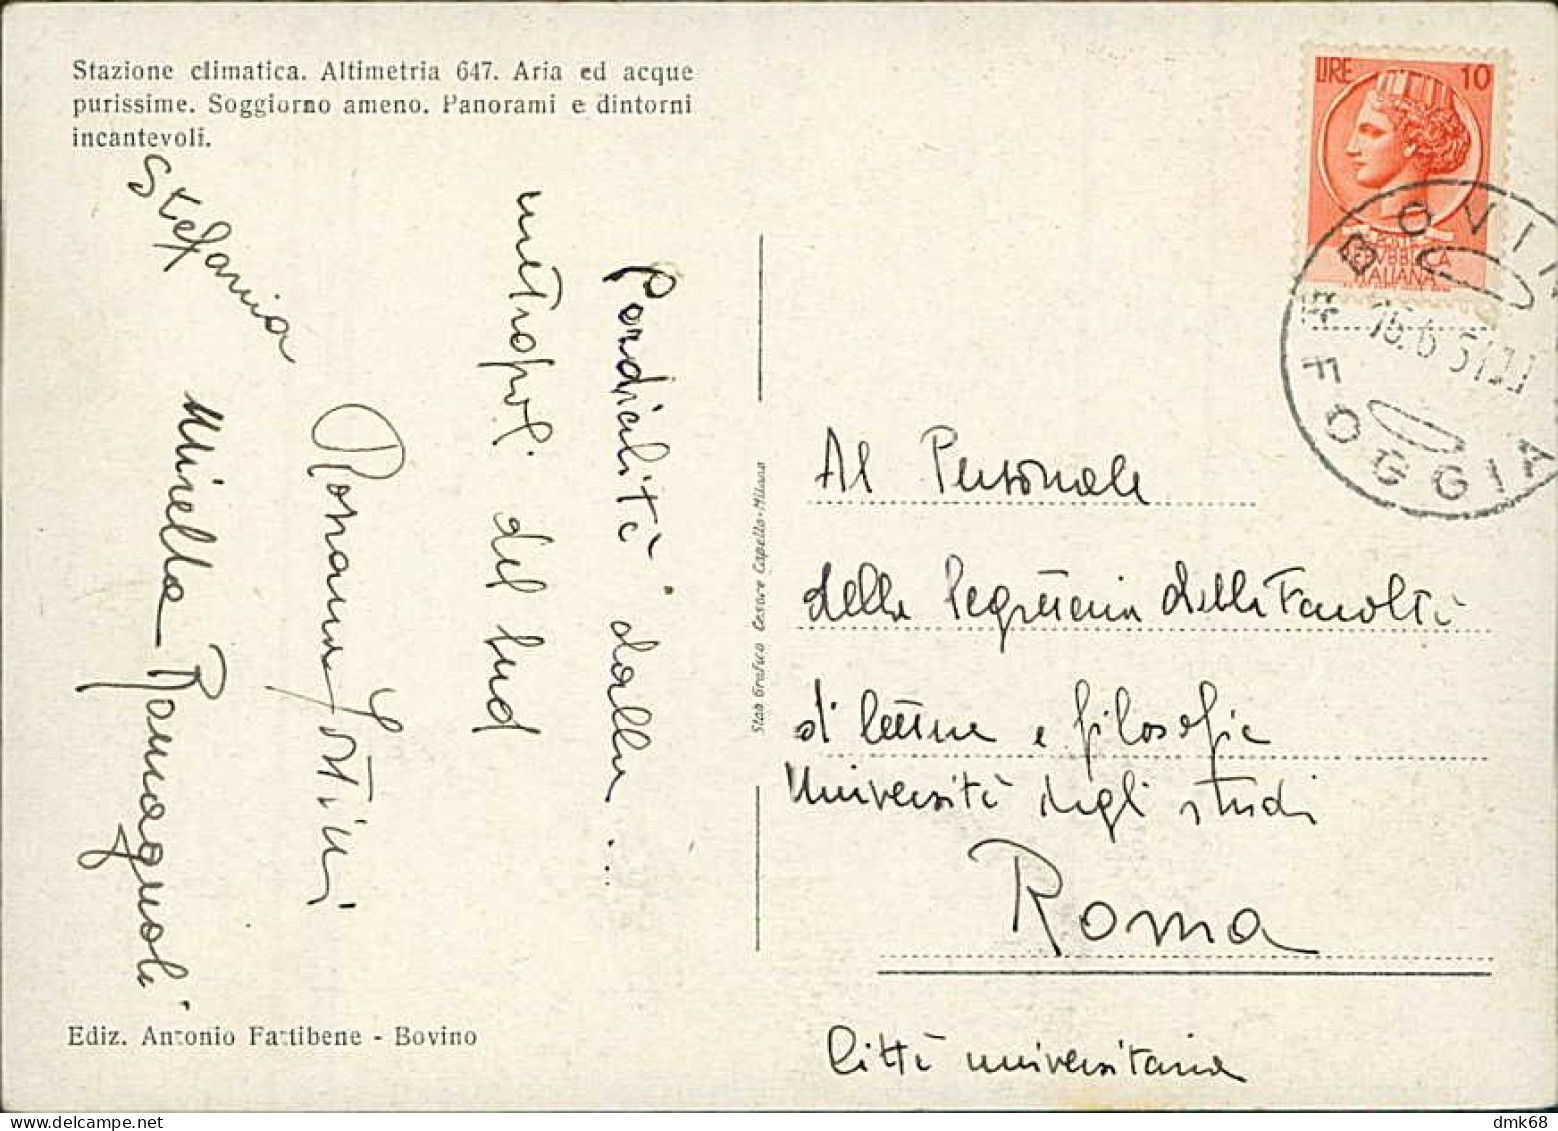 Stazione climatica. Altimetria 647. Aria ed acque
purissime. Soggiorno ameno. Panorami e dintorni
incantevoli.
LIRE 10
POSTE
REPUBBLICA
ITALIANA
BOVINO
FOGGIA
cordialità dalla...
metropoli del sud
Rosanna
Stefania
Mirella Romagnoli
Stab Grafico Cesare Capello-Milano
Al Personale
della Segreteria della Facoltà
di lettere e filosofia
Università degli studi
Roma
Città universitaria
Ediz. Antonio Fattibene - Bovino
www.delcampe.net
dmk68